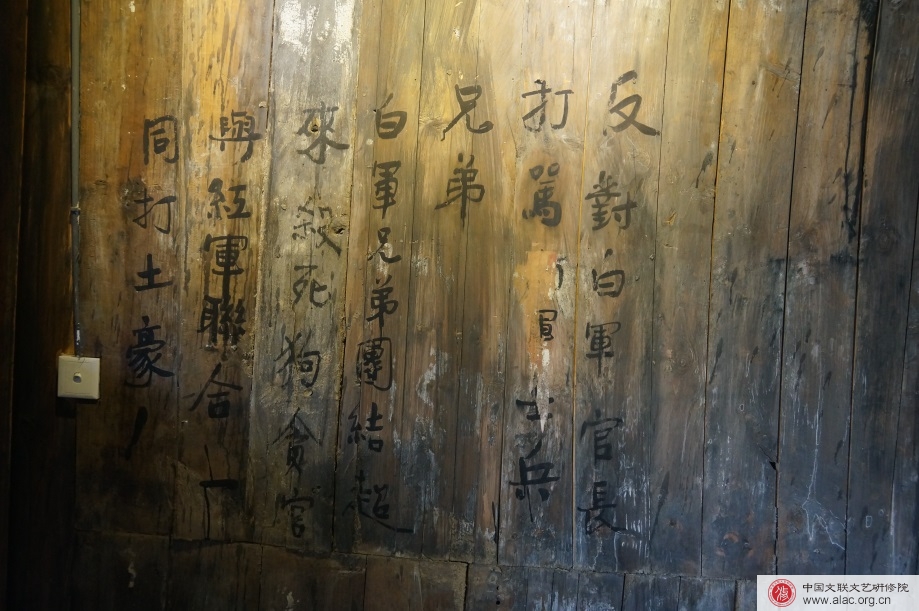 反對白軍官長
打罵士兵
兄弟
白軍兄弟團結起
來殺死狗貪官
與紅軍聯合一
同打土豪！
中国文联文艺研修院
www.alac.org.cn